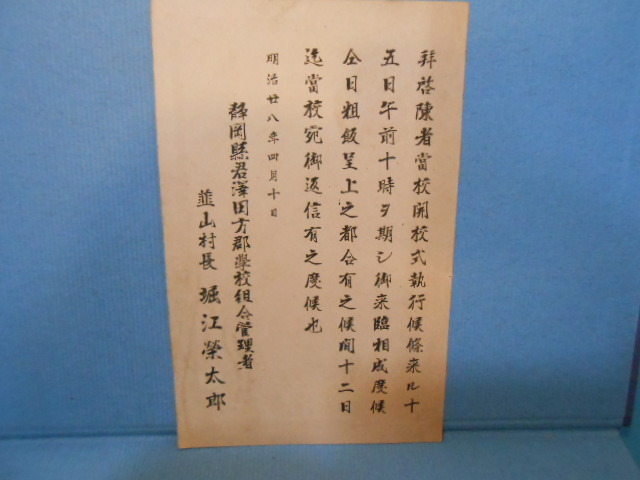 拜啓陳者當校開校式執行候條来ル十
五日午前十時ヲ期シ御来臨相成度候
仝日粗飯呈上之都合有之候間十二日
迄當校宛御返信有之度候也
明治廿八年四月十日
静岡縣君澤田方郡學校組合管理者
韮山村長 堀江榮太郎